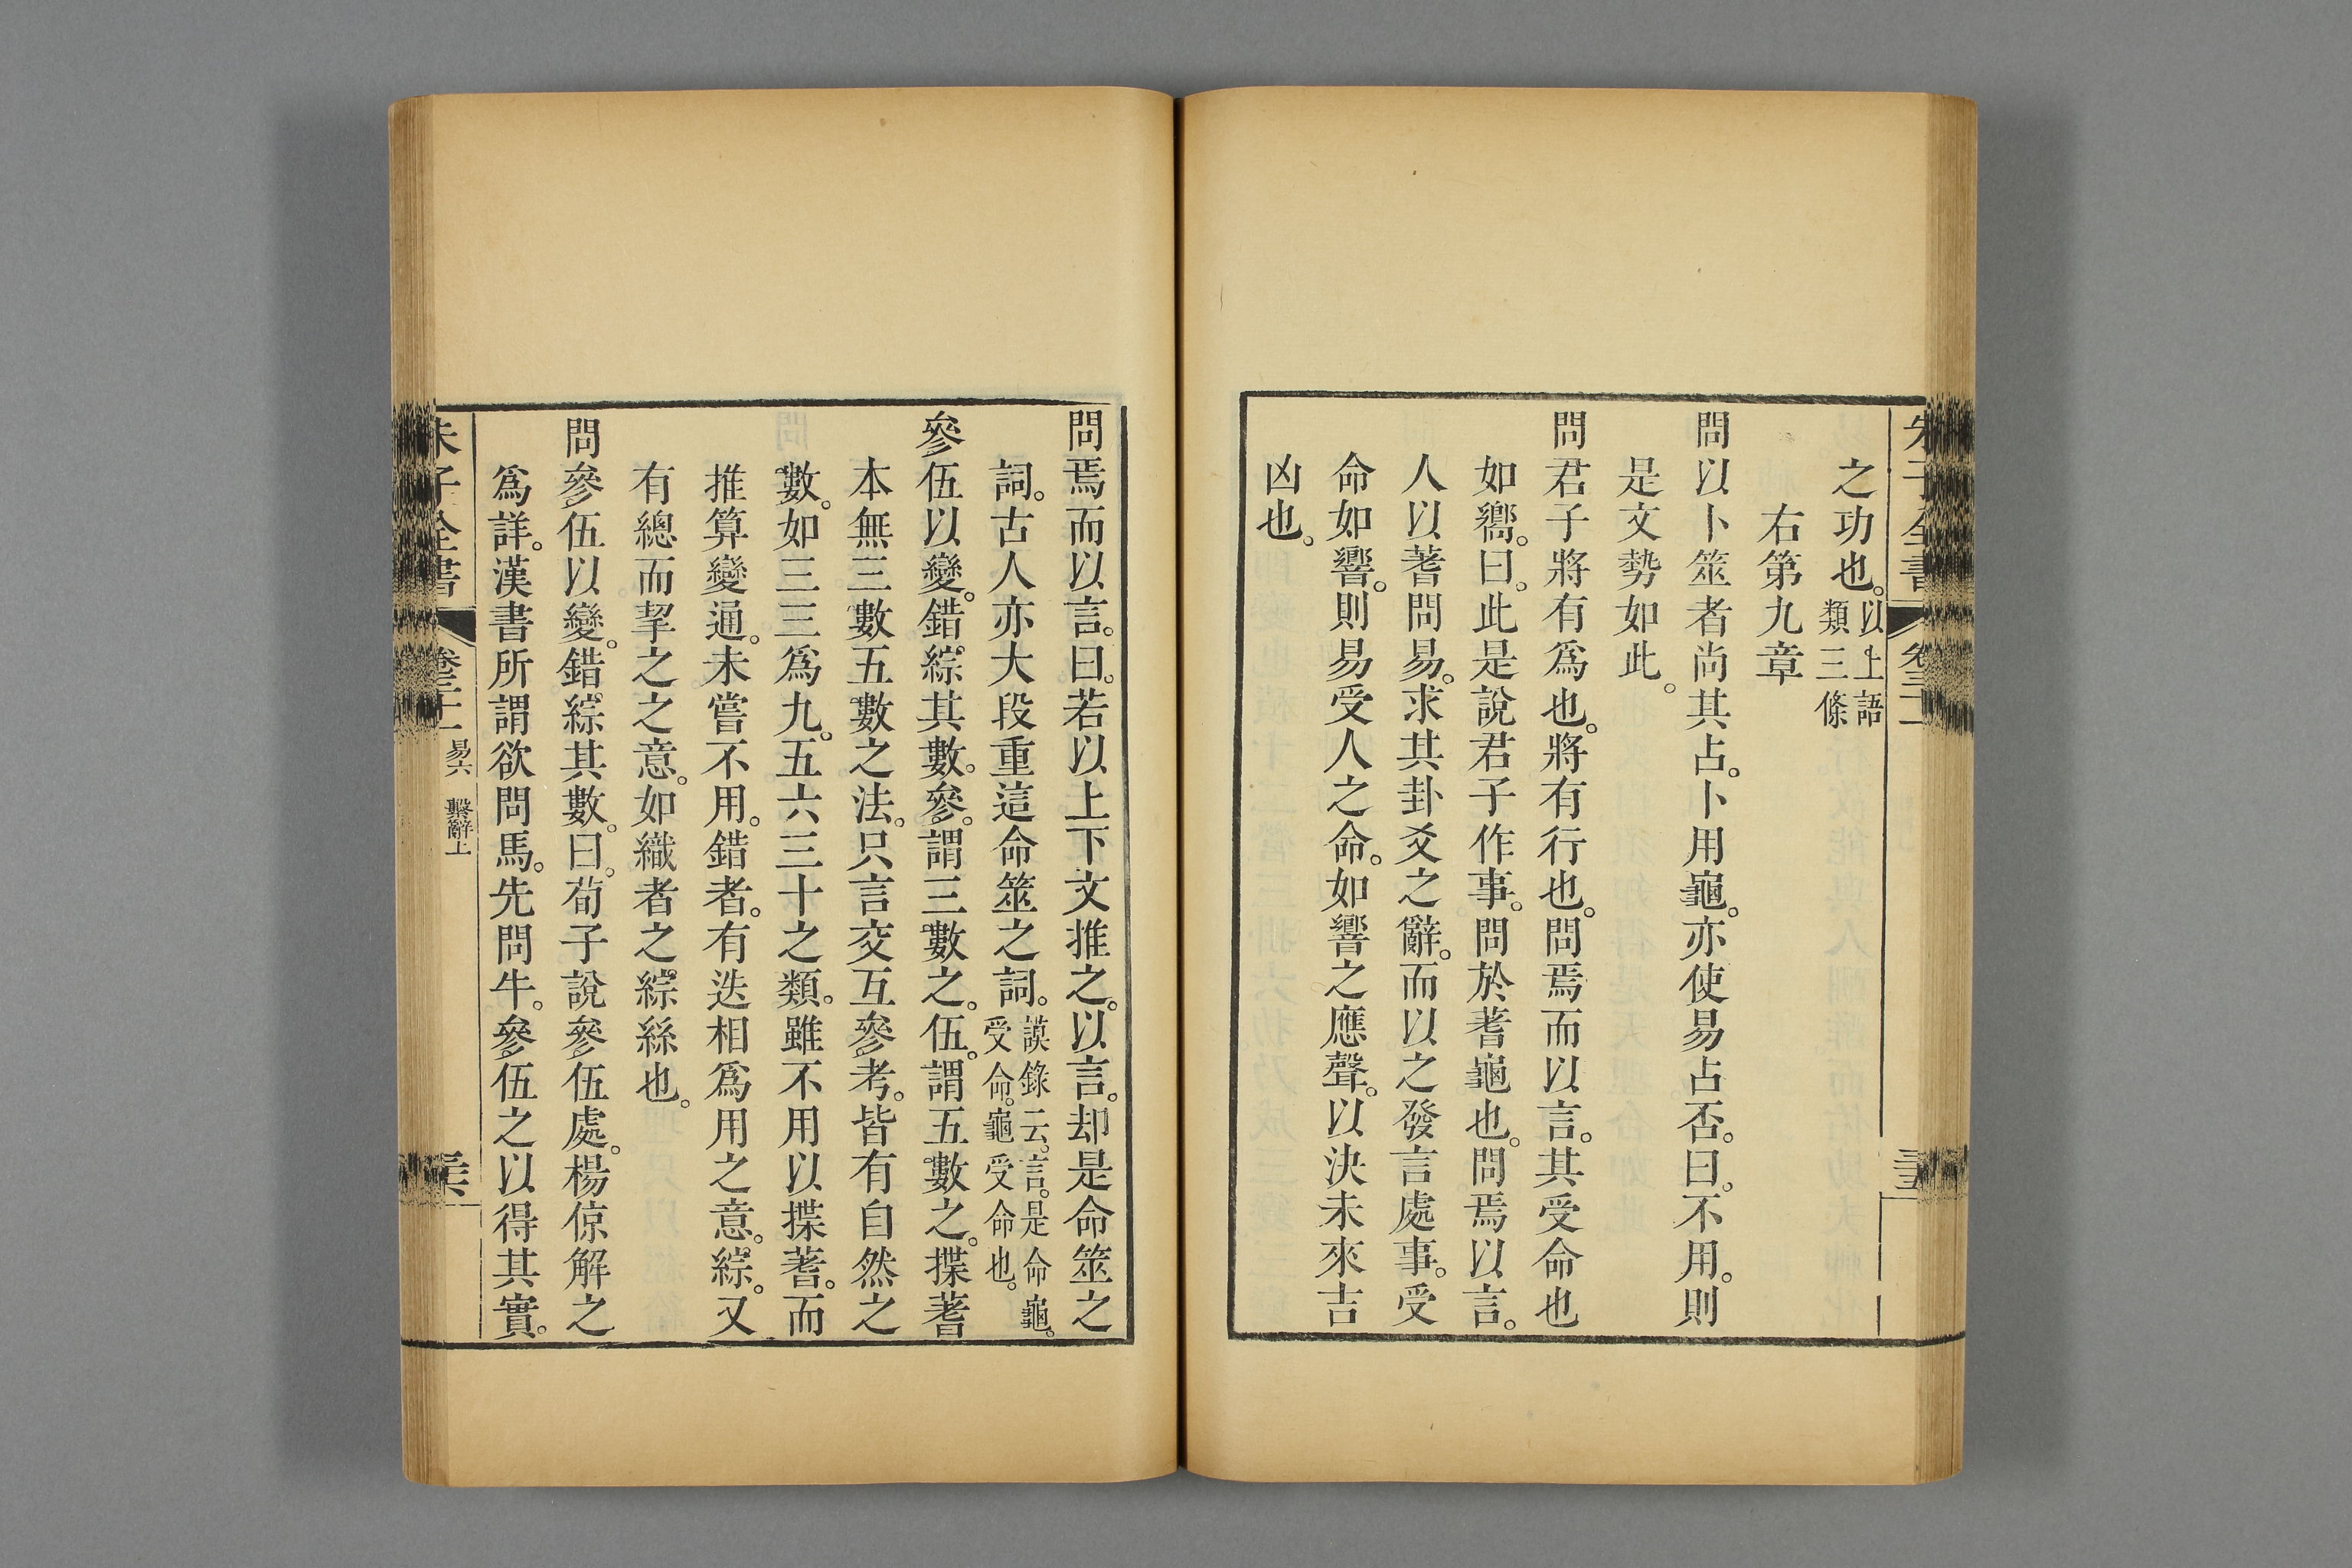 之功也。以上語類三條
右第九章
問以卜筮者尚其占。卜用龜。亦使易占否。曰。不用。則
是文勢如此。
問君子將有為也。將有行也。問焉而以言。其受命也
如嚮。曰。此是說君子作事。問於蓍龜也。問焉以言。
人以蓍問易。求其卦爻之辭。而以之發言處事。受
命如響。則易受人之命。如響之應聲。以決未來吉
凶也。
問焉而以言。曰。若以上下文推之。以言。却是命筮之
詞。古人亦大段重這命筮之詞。謨錄云。言。是命龜。受命。龜受命也。
參伍以變。錯綜其數。參。謂三數之。伍。謂五數之。揲蓍
本無三數五數之法。只言交互參考。皆有自然之
數。如三三爲九。五六三十之類。雖不用以揲蓍。而
推算變通。未嘗不用。錯者。有迭相爲用之意。綜。又
有總而挈之之意。如織者之綜絲也。
問參伍以變。錯綜其數。曰。荀子說參伍處。楊倞解之
爲詳。漢書所謂欲問馬。先問牛。參伍之以得其實。
朱子全書 卷三十一 易六 繫辭上